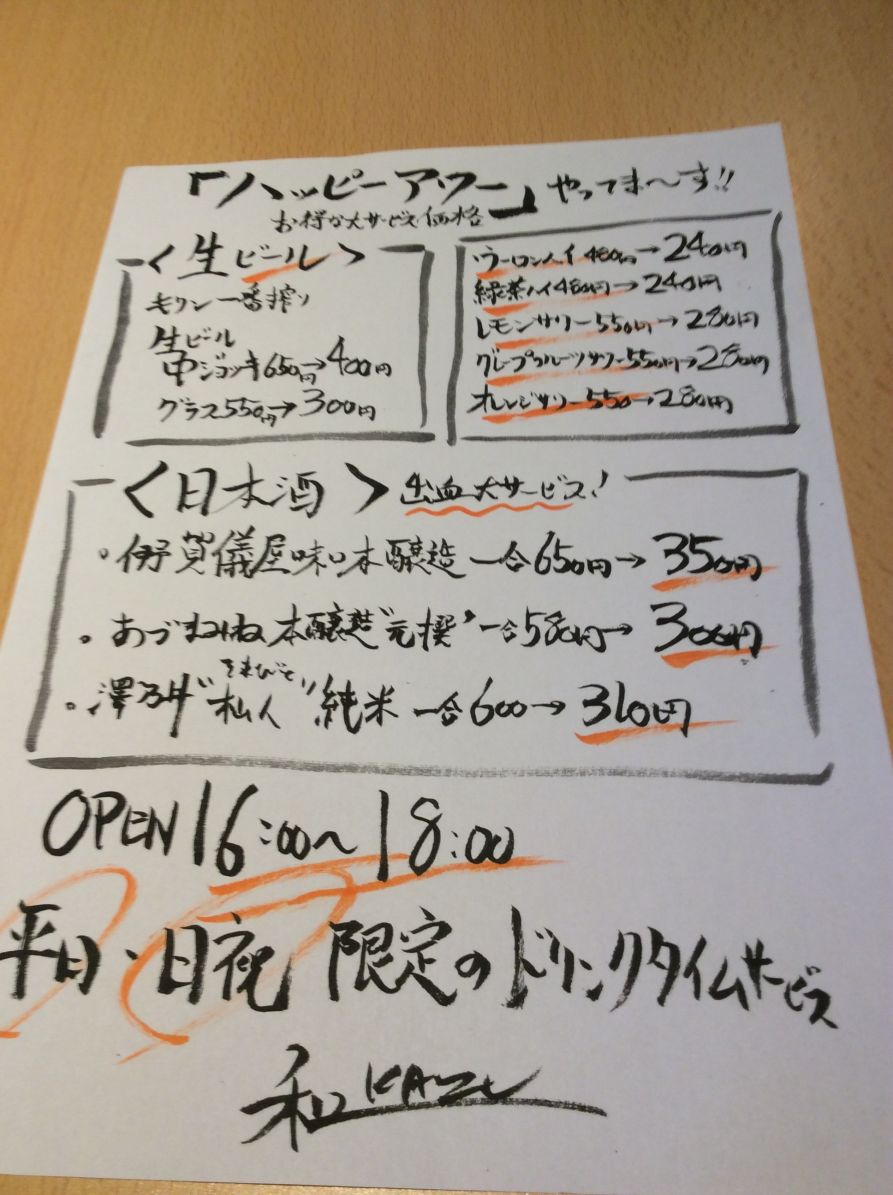 「ハッピーアワー」やってま〜す!!
お得な大サービス価格
<生ビール>
キリン一番搾り
生ビール
中ジョッキ650円→400円
グラス550円→300円
ウーロンハイ480円→240円
緑茶ハイ480円→240円
レモンサワー550円→280円
グレープフルーツサワー550円→280円
オレンジサワー550→280円
<日本酒> 出血大サービス!
・伊賀儀屋味い本醸造 一合650円→350円
・あづまみね本醸造"元撰" 一合580円→300円
そまびと
・澤乃井"杣人"純米 一合600→310円
OPEN 16:00〜18:00
平日・日祝 限定のドリンクタイムサービス
和 KAZU